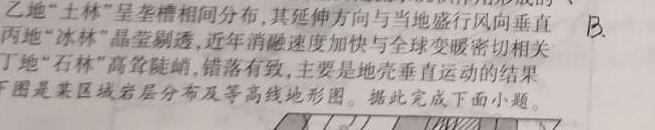 乙地“土林”呈垄槽相间分布,其延伸方向与当地盛行风向垂直
B.
丙地“冰林”晶莹剔透,近年消融速度加快与全球变暖密切相关
丁地“石林”高耸陡峭,错落有致,主要是地壳垂直运动的结果
下图是某区域岩层分布及等高线地形图。据此完成下面小题。